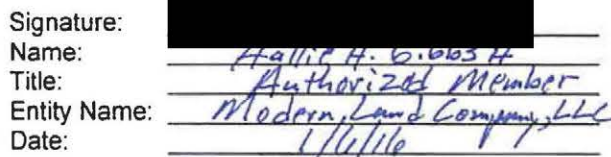 Signature:
Name: Hallie H.
Title: Authorized Member
Entity Name: Modern Land Company, LLC
Date: 1/6/16